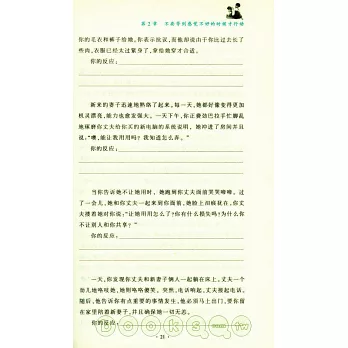 第2章 不要等到感觉不妙的时候才行动
你的毛衣和裤子给她，你表示抗议，而他却说由于你比过去长了
些肉，衣服已经太过紧身了，穿给她穿才合适。
你的反应：
新来的妻子迅速地熟络了起来，每一天，她都好像变得更加
机灵漂亮，能力也愈发强大。一天下午，你正费劲巴拉手忙脚乱
地琢磨你丈夫给你买的新电脑的系统说明，她冲进了房间并且
说：“噢，能让我用用吗？我知道怎么弄。”
你的反应：
当你告诉她不让她用时，她跑到你丈夫面前哭哭啼啼。过
了一会儿，她和你丈夫一起来到你面前，她脸上泪痕犹在，你丈
夫搂着她对你说：“让她用用怎么了？你有什么损失吗？为什么你
不让别人和你共享？”
你的反应：
一天，你发现你丈夫和新妻子俩人一起躺在床上，丈夫一个
劲儿地咯吱她，她则咯咯傻笑。突然，电话响起，丈夫接起电话。
随后，他告诉你有点重要的事情发生，他必须马上出门，要你留
在家里陪着新妻子，并且确保她一切无恙。
你的反应：
21
Booksqq.tw